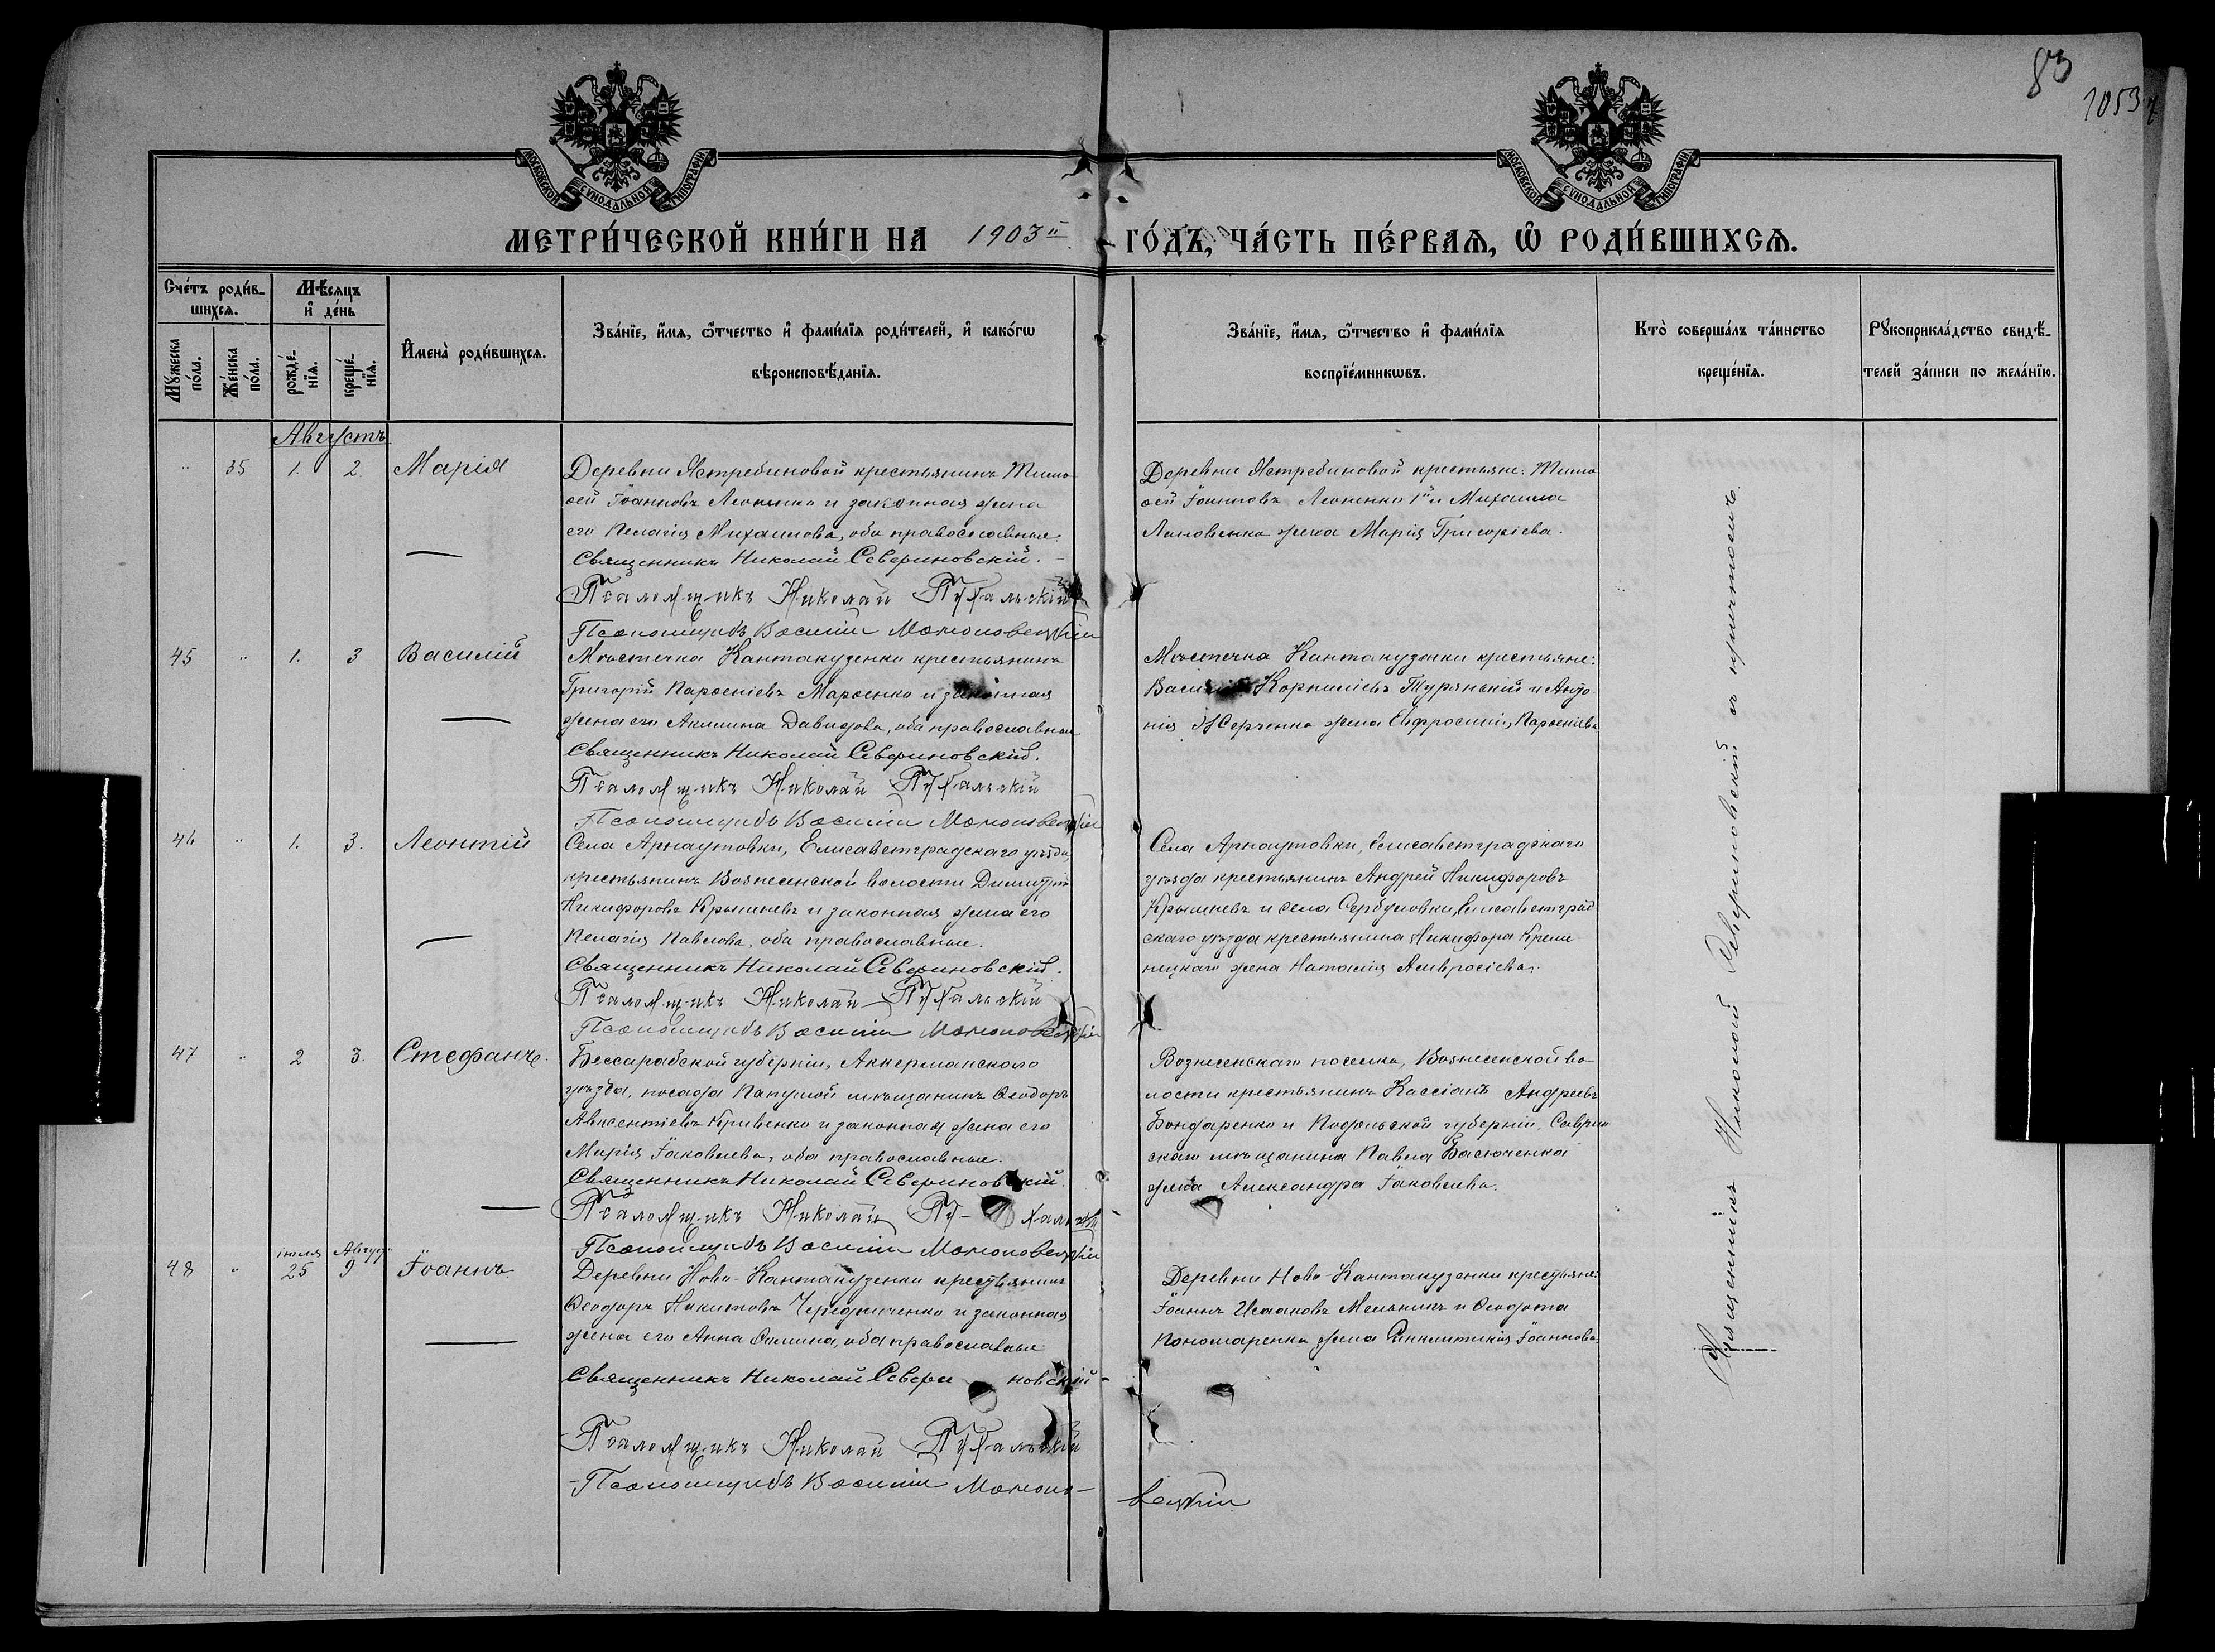 83
1053
МОСКОВСКОЙ СѴНОДАЛЬНОЙ ТИПОГРАФІИ
МОСКОВСКОЙ СѴНОДАЛЬНОЙ ТИПОГРАФІИ
МЕТРИ́ЧЕСКОЙ КНИ́ГИ НА 1903й ГО́ДЪ, ЧА́СТЬ ПЕ́РВАѦ, Ѡ҆ РОДИ́ВШИХСѦ.
Сче́тъ роди́в-
шихсѧ.
Мѣ́сяцъ
и҆ де́нь
Мꙋ́жеска
по́ла.
Же́нска
по́ла.
рожде́-
нїѧ.
креще́-
нїѧ.
И҆мена̀ роди́вшихсѧ.
Зва́нїе, и҆́мѧ, ѻ҆́тчество и҆ фами́лїѧ роди́телей, и҆ како́гѡ
вѣроисповѣ́данїѧ.
Зва́нїе, и҆́мѧ, ѻ҆́тчество и҆ фами́лїѧ
воспрїе́мникѡвъ.
Кто̀ соверша́лъ та́инство
креще́нїѧ.
Рꙋкоприкла́дство свидѣ́-
телей за́писи по жела́нїю.
Августъ
" 35 1. 2. Марія
Деревни Ястребиновой крестьянинъ Тимо-
ѳей Іоанновъ Леоненко и законная жена
его Пелагія Михаилова, оба православные.
Священникъ Николай Севериновскій.
Псаломщикъ Николай Пухальскій
Псаломщикъ Василій
Деревни Ястребиновой крестьяне: Тимо-
ѳей Іоанновъ Леоненко 1й и Михаила
жена Марія Григоріева.
45 " 1. 3 Василій
Мѣстечка Кантакузенки крестьянинъ
Григорій Парѳеніевъ Марченко и законная
жена его Акилина Давидова, оба православные
Священникъ Николай Севериновскій.
Псаломщикъ Николай Пухальскій
Псаломщикъ Василій
Мѣстечка Кантакузенки крестьяне:
Василій Корниліевъ Турянскій и Анто-
нія жена Евфросинія Парѳеніева
46 " 1. 3. Леонтій
Села Арнаутовки, Елисаветградскаго уѣзда,
крестьянинъ Вознесенской волости Димитрій
Никифоровъ Крышневъ и законная жена его
Пелагія Павлова, оба православные.
Священникъ Николай Севериновскій.
Псаломщикъ Николай Пухальскій
Псаломщикъ Василій
Села Арнаутовки, Елисаветградскаго
уѣзда крестьянинъ Андрей Никифоровъ
Крышневъ и села Сербуловки, Елисаветград-
скаго уѣзда крестьянина Никифора Креми-
нецкаго жена Наталія Амвросіева.
47 " 2 3. Стефанъ.
Бессарабской губерніи, Аккерманскаго
уѣзда, посада Папушой мѣщанинъ Ѳеодоръ
Авксентіевъ Кривенко и законная жена его
Марія Іаковлева, оба православные.
Священникъ Николай Севериновскій.
Псаломщикъ Николай Пу- хальскій
Псаломщикъ Василій
Вознесенскаго поселка, Вознесенской во-
лости крестьянинъ Кассіанъ Андреевъ
Бондаренко и Подольской губерніи, Саврин-
скаго мѣщанина Павла Басюченка
жена Александра Іаковлева.
іюля Август
48 " 25 9 Іоаннъ
Деревни Ново-Кантакузенки крестьянинъ
Ѳеодоръ Никитовъ Чередниченко и законная
жена его Анна Ѳомина, оба православные
Священникъ Николай Севери новскій
Псаломщикъ Николай Пухальскій
Псаломщикъ Василій
Деревни Ново-Кантакузенки крестьяне:
Іоаннъ Исааковъ Мельникъ и Ѳеодота
Пономаренка жена Синклитикія Іоаннова.
Священникъ Николай Севериновскій съ причтомъ.